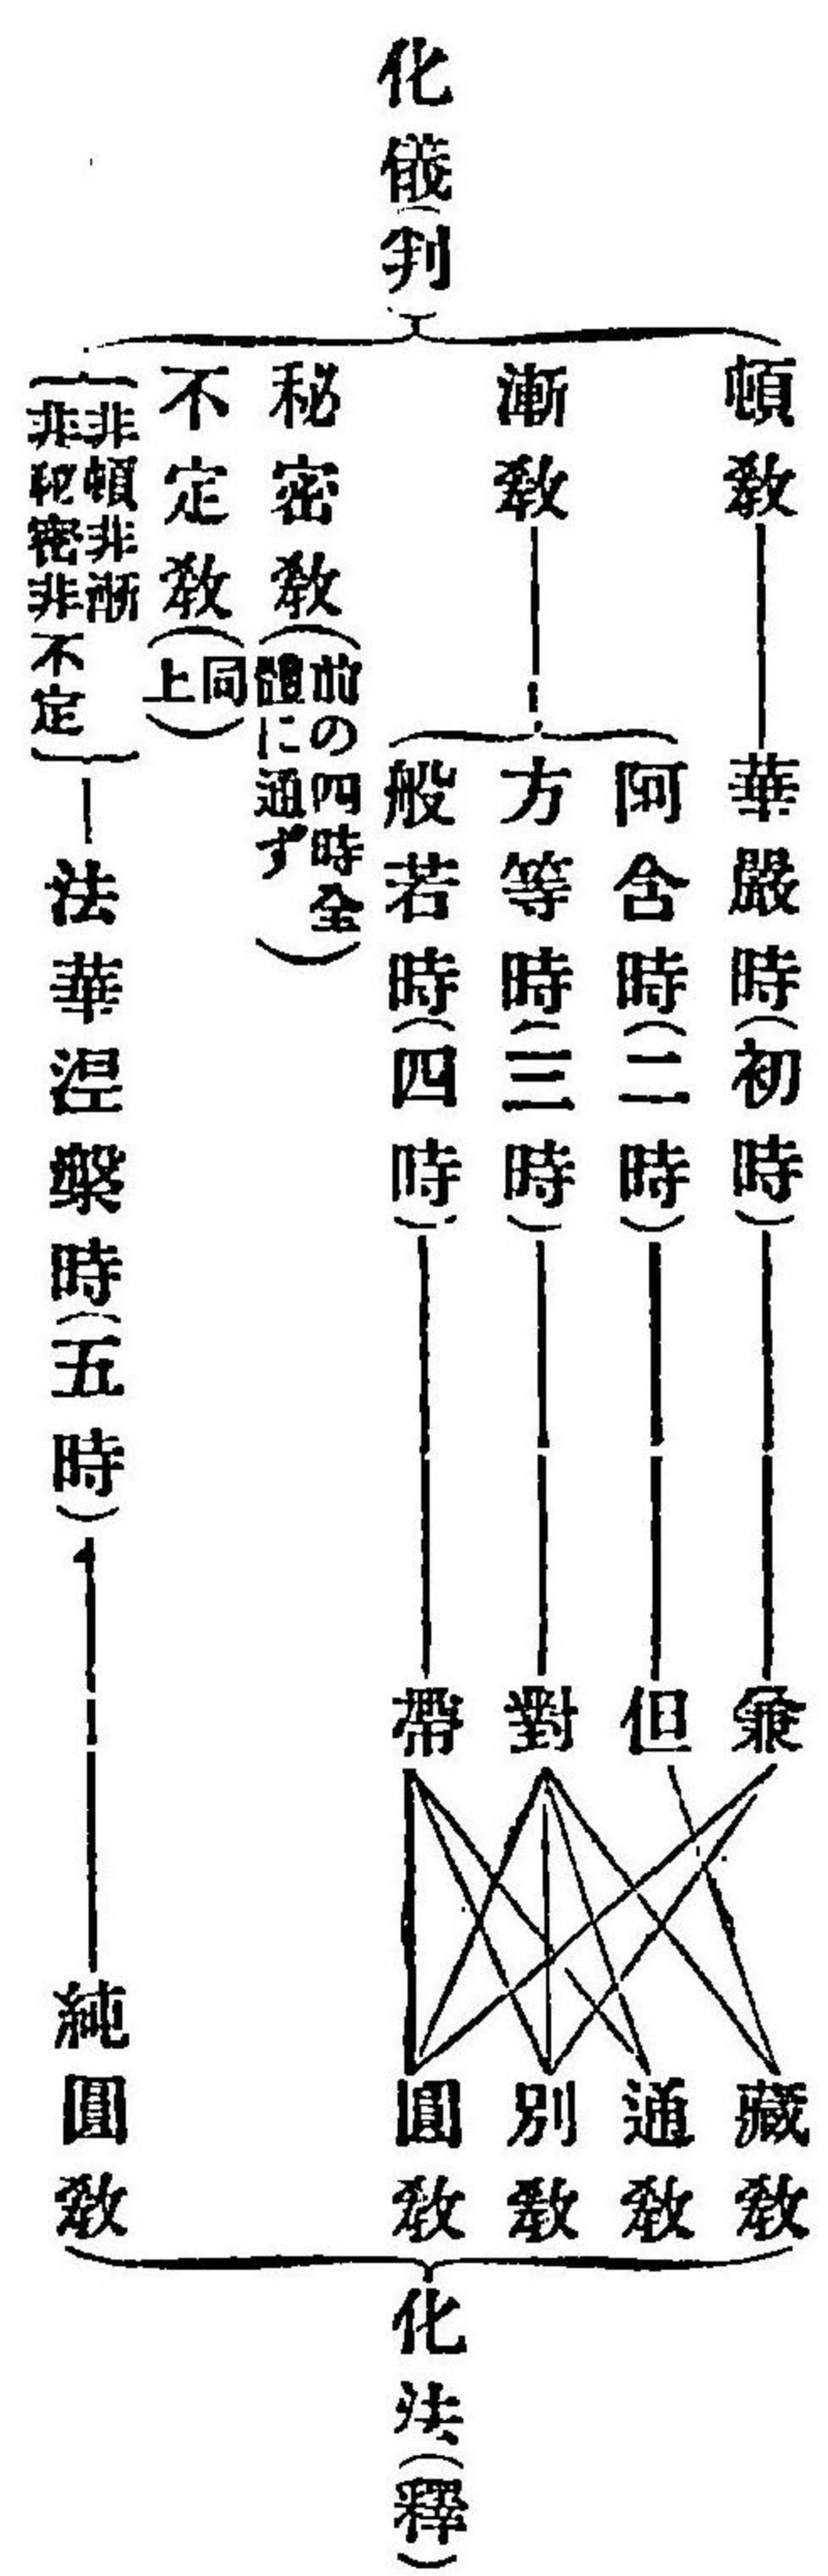 化儀(判)
頓教
華嚴時(初時)
兼
漸教
阿含時(二時)
但
方等時(三時)
對
般若時(四時)
帶
秘密教(前の四時全
體に通ず)
不定教(同
上)
非頓非漸
非秘密非不定
法華涅槃時(五時)
藏教
通教
別教
圓教
純圓教
化法(釋)